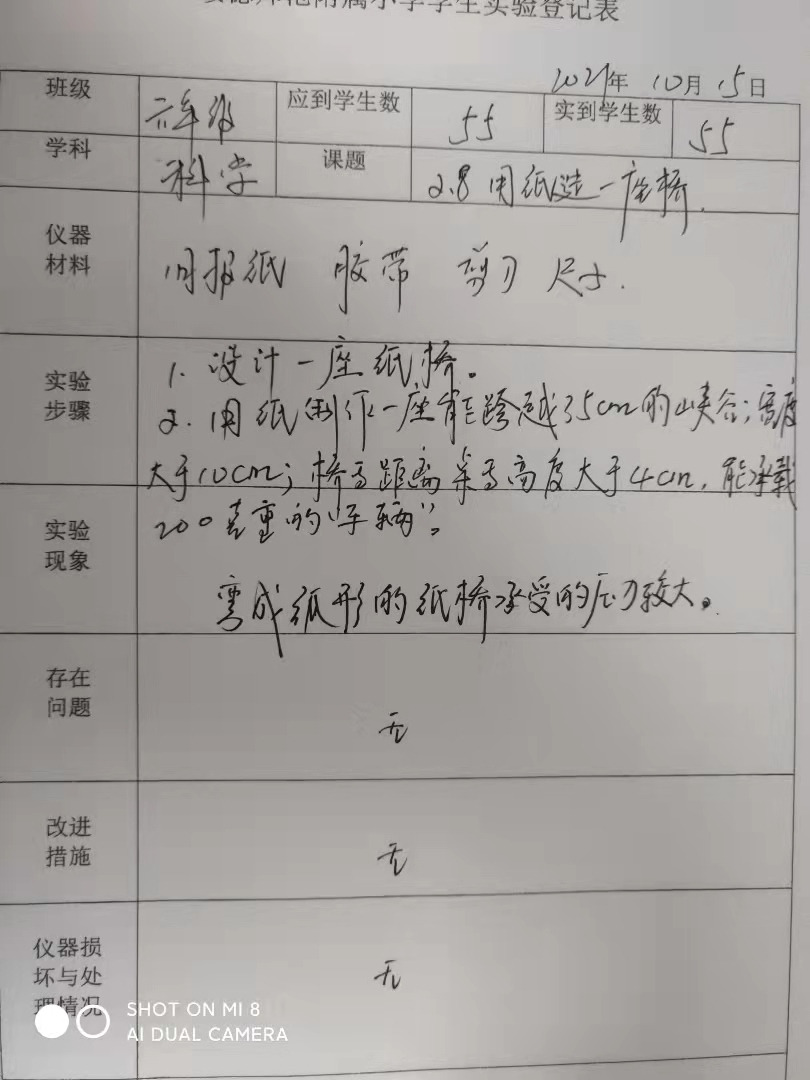 附属小学学生实验登记表
2021年 10月 15日
班级 六年级 应到学生数 55 实到学生数 55
学科 科学 课题 2.8 用纸造一座桥.
仪器
材料
旧报纸 胶带 剪刀 尺子.
实验
步骤
1. 设计一座纸桥。
2. 用纸制作一座能跨越35cm的峡谷；宽度
大于10cm；桥面距离桌面高度大于4cm，能承载
200克重的“车辆”。
实验
现象
弯成弧形的纸桥承受的压力较大。
存在
问题
无
改进
措施
无
仪器损
坏与处
理情况
无
SHOT ON MI 8
AI DUAL CAMERA